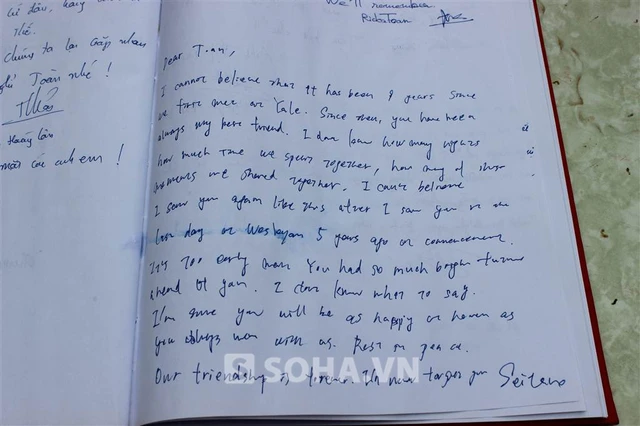 chúng ta lại gặp nhau
Toàn nhé !
Hoàng Lân
các anh em !
We'll remember
Dear Tran,
I cannot believe that it has been 9 years since
we first met at Yale. Since then, you have been
always my best friend. I don know how many nights
how much time we spent together, how many of
moments we shared together. I can't believe
I saw you again like this after I saw you on the
last day at Wesleyan 5 years ago at commencement.
It's too early man. You had so much bright future
ahead of you. I don't know what to say.
I'm sure you will be as happy at heaven as
you always were with us. Rest in peace.
Our friendship is forever. I'll never forget you
SOHA.VN